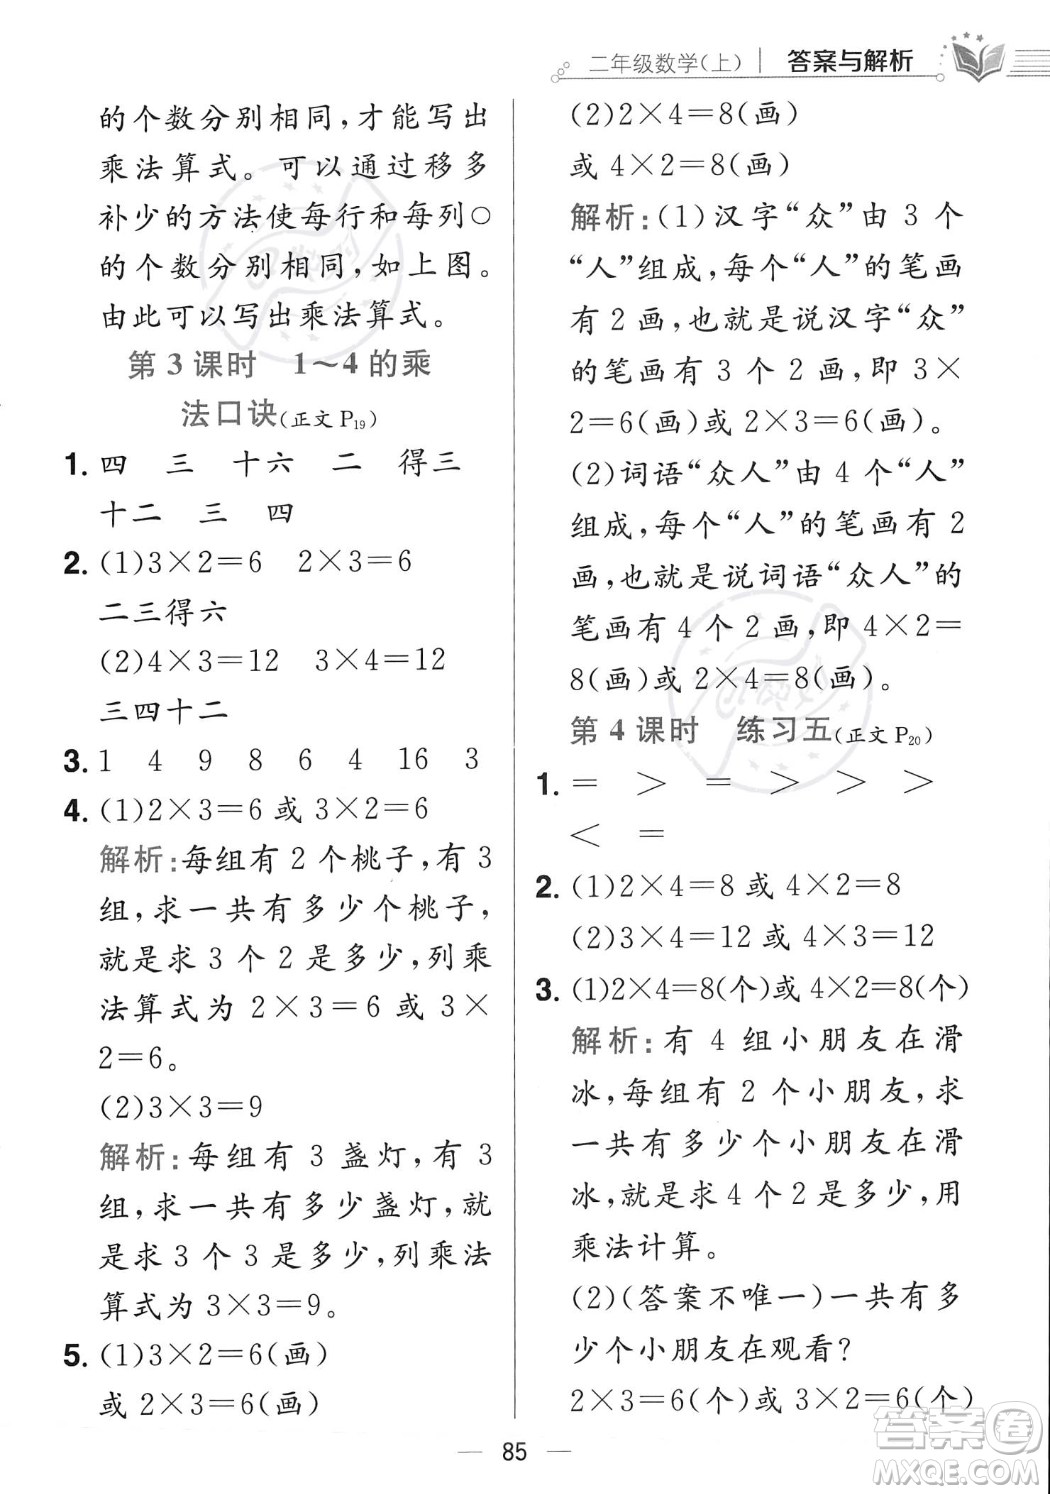 二年级数学(上) 答案与解析
的个数分别相同,才能写出
乘法算式。可以通过移多
补少的方法使每行和每列○
的个数分别相同,如上图。
由此可以写出乘法算式。
第 3 课时 1～4 的乘
法口诀(正文 P19)
1. 四 三 十六 二 得三
十二 三 四
2. (1)3×2=6 2×3=6
二三得六
(2)4×3=12 3×4=12
三四十二
3. 1 4 9 8 6 4 16 3
4. (1)2×3=6 或 3×2=6
解析:每组有 2 个桃子,有 3
组,求一共有多少个桃子,
就是求 3 个 2 是多少,列乘
法算式为 2×3=6 或 3×
2=6。
(2)3×3=9
解析:每组有 3 盏灯,有 3
组,求一共有多少盏灯,就
是求 3 个 3 是多少,列乘法
算式为 3×3=9。
5. (1)3×2=6(画)
或 2×3=6(画)
(2)2×4=8(画)
或 4×2=8(画)
解析:(1)汉字“众”由 3 个
“人”组成,每个“人”的笔画
有 2 画,也就是说汉字“众”
的笔画有 3 个 2 画,即 3×
2=6(画)或 2×3=6(画)。
(2)词语“众人”由 4 个“人”
组成,每个“人”的笔画有 2
画,也就是说词语“众人”的
笔画有 4 个 2 画,即 4×2=
8(画)或 2×4=8(画)。
第 4 课时 练习五(正文 P20)
1. = > = > > >
< =
2. (1)2×4=8 或 4×2=8
(2)3×4=12 或 4×3=12
3. (1)2×4=8(个)或 4×2=8(个)
解析:有 4 组小朋友在滑
冰,每组有 2 个小朋友,求
一共有多少个小朋友在滑
冰,就是求 4 个 2 是多少,用
乘法计算。
(2)(答案不唯一)一共有多
少个小朋友在观看?
2×3=6(个)或 3×2=6(个)
85
答案卷
MXQE.COM